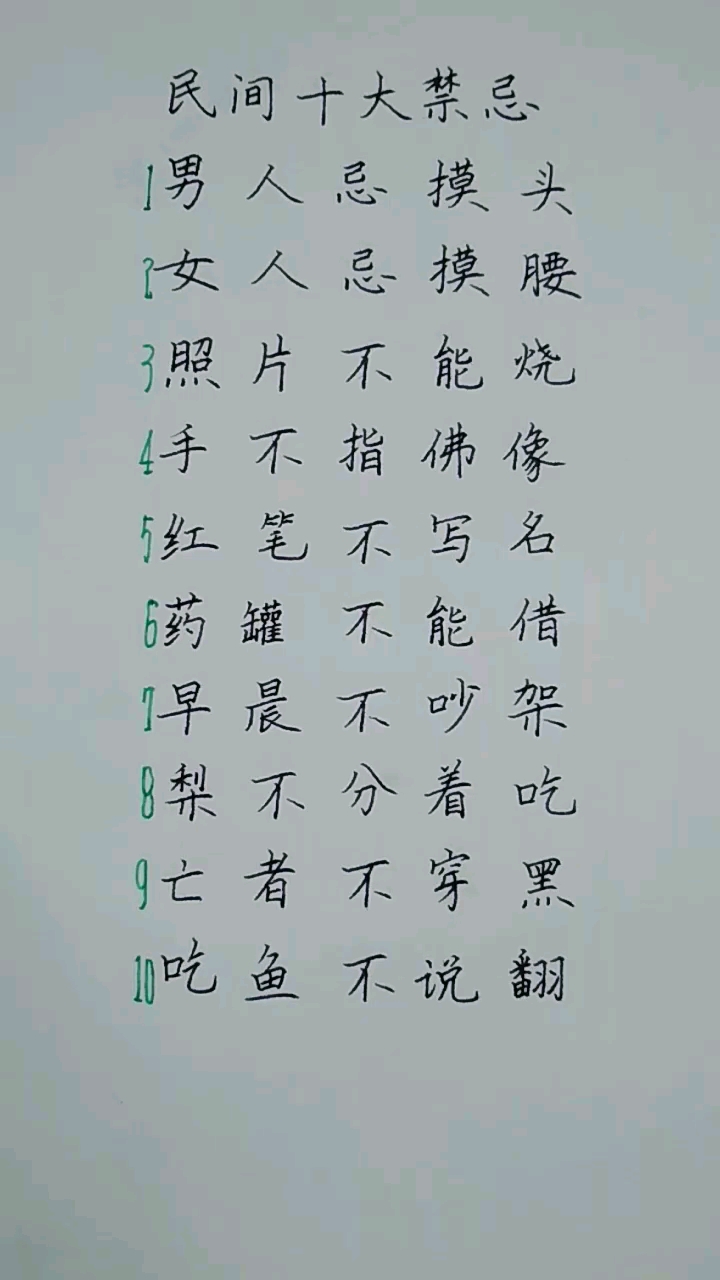 民间十大禁忌
1男人忌摸头
2女人忌摸腰
3照片不能烧
4手不指佛像
5红笔不写名
6药罐不能借
7早晨不吵架
8梨不分着吃
9亡者不穿黑
10吃鱼不说翻